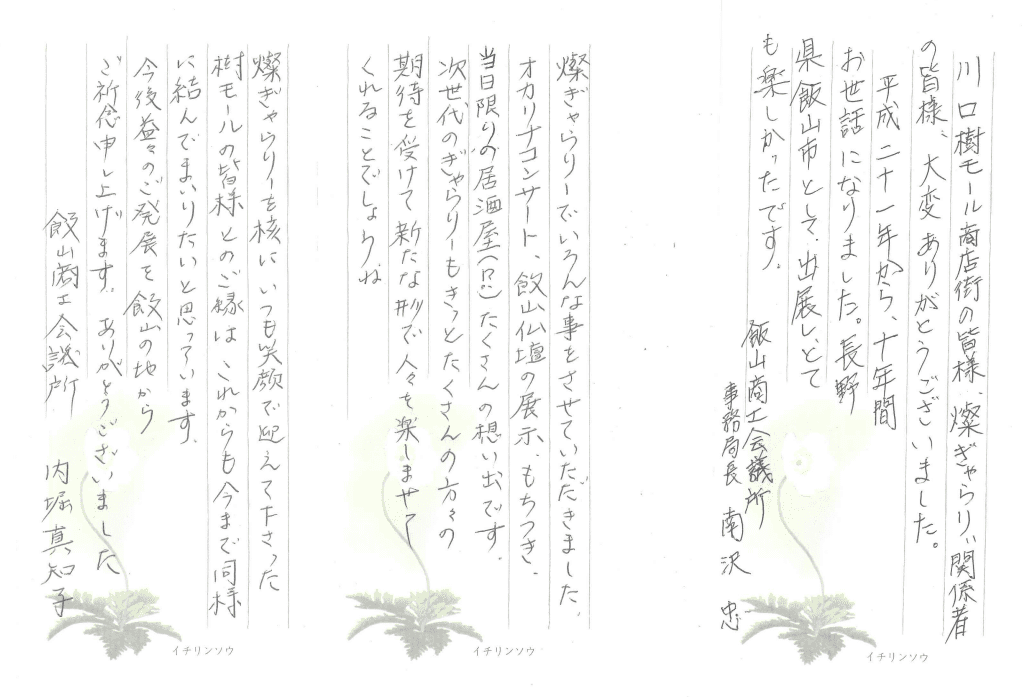 川口樹モール商店街の皆様、燦ぎゃらりぃ関係者
の皆様、大変ありがとうございました。
平成二十一年から、十年間
お世話になりました。長野
県飯山市として、出展し、とて
も楽しかったです。
飯山商工会議所
事務局長 南沢 忠
イチリンソウ
燦ぎゃらりーでいろんな事をさせていただきました。
オカリナコンサート、飯山仏壇の展示、もちつき、
当日限りの居酒屋(!?) たくさんの想い出です。
次世代のぎゃらりーもきっとたくさんの方々の
期待を受けて新たな形で人々を楽しませて
くれることでしょうね
イチリンソウ
燦ぎゃらりーを核に、いつも笑顔で迎えて下さった
樹モールの皆様とのご縁は、これからも今まで同様
に結んでまいりたいと思っています。
今後益々のご発展を飯山の地から
ご祈念申し上げます。ありがとうございました
飯山商工会議所 内堀真知子
イチリンソウ